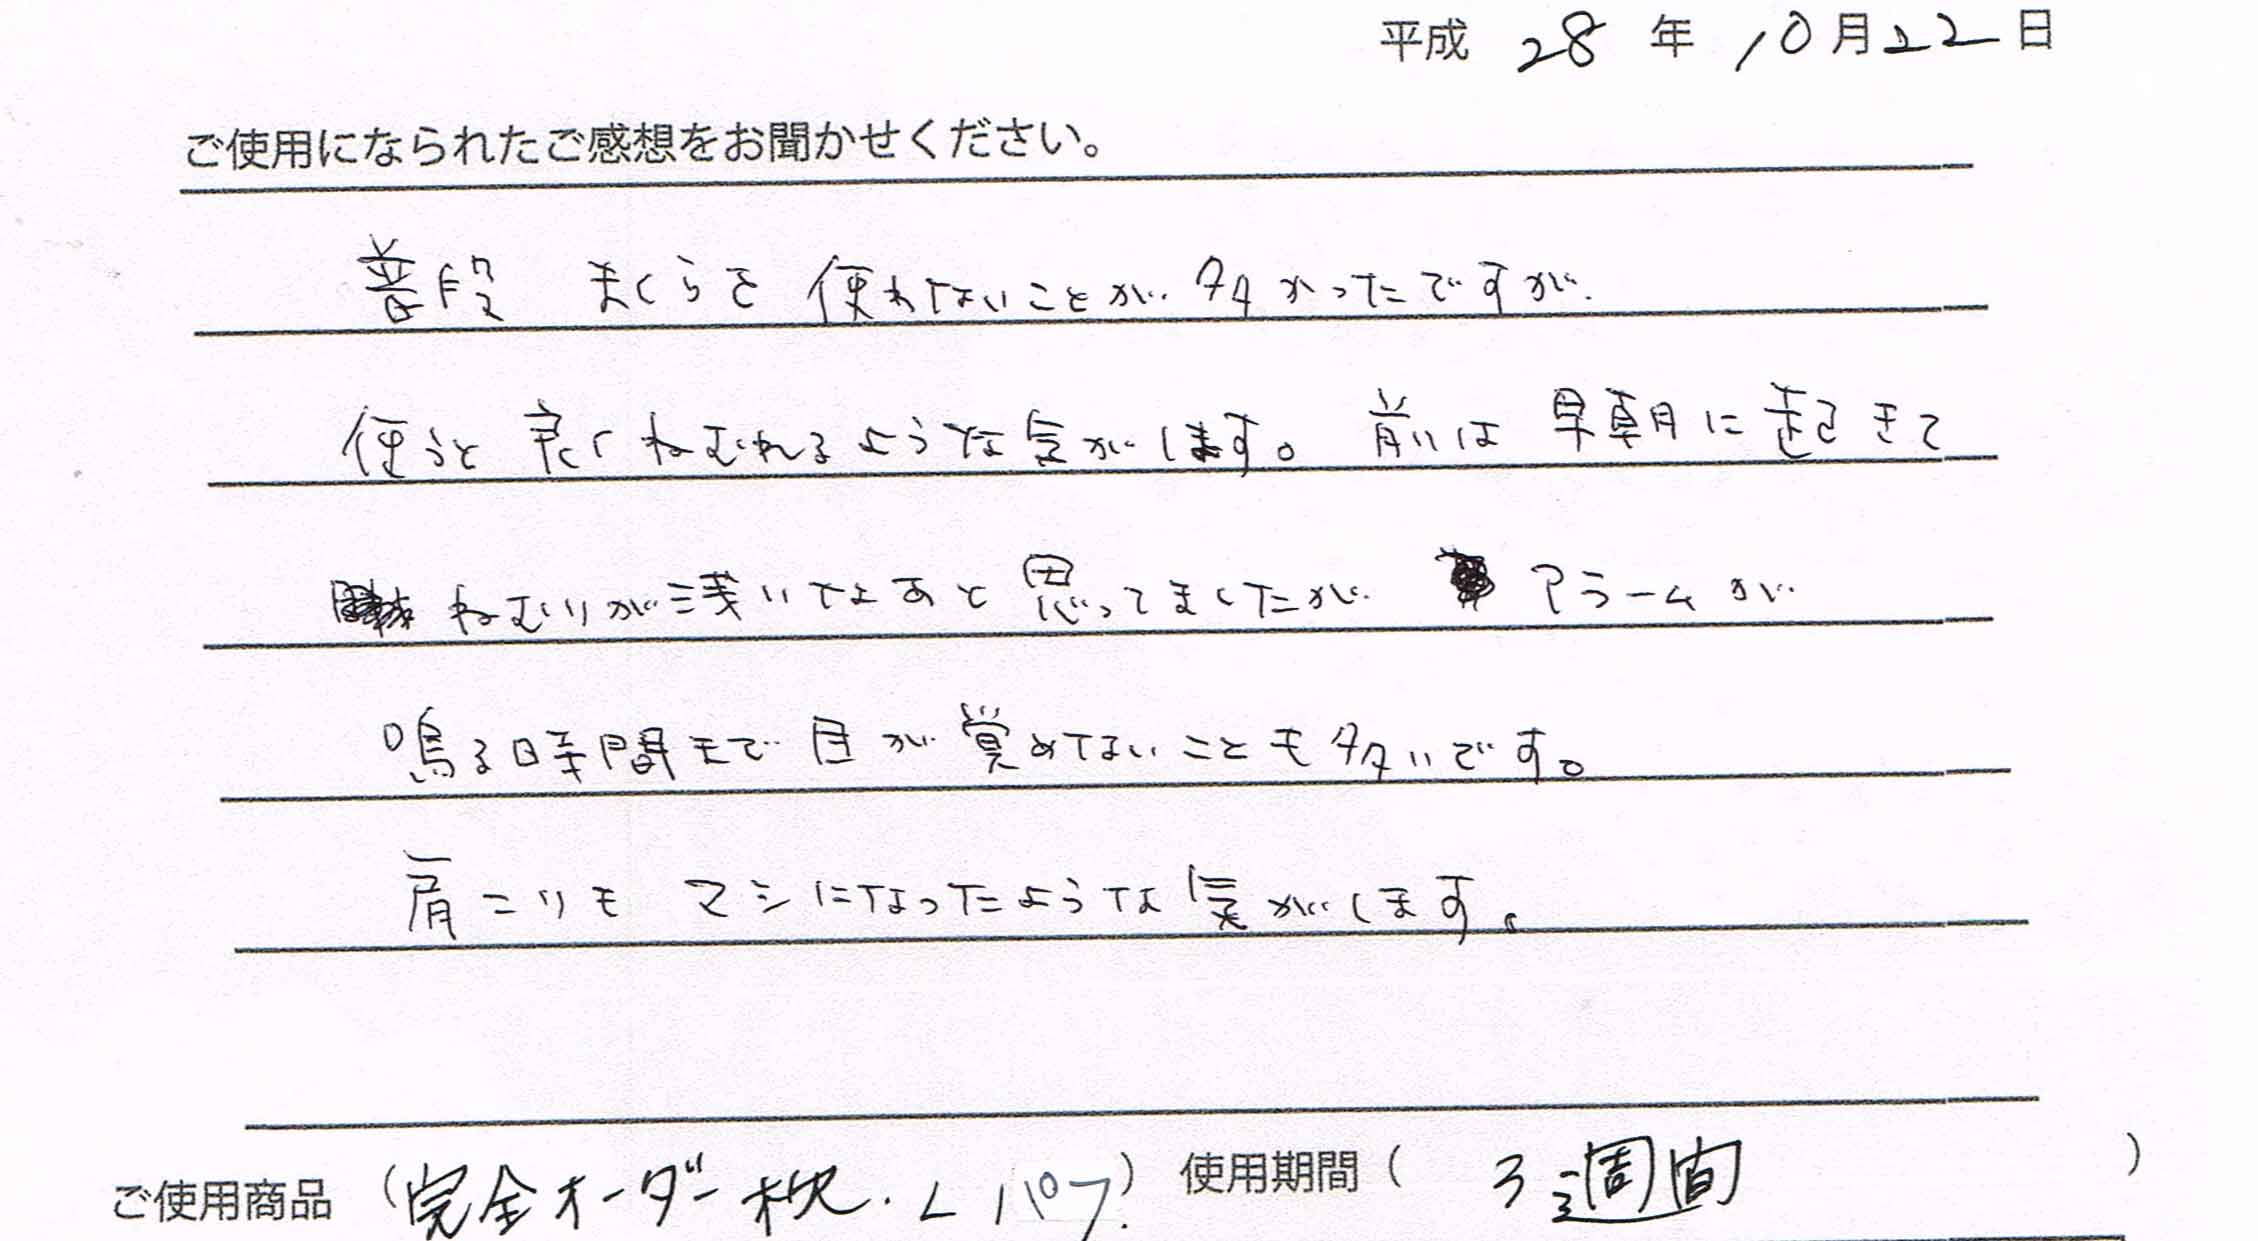 平成 28 年 10 月 22 日
ご使用になられたご感想をお聞かせください。
普段 まくらを 使わないことが 多かったですが
使うと 良く ねむれるような気がします。 前は 早朝に起きて
ねむりが浅いなあと思ってましたが アラームが
鳴る時間まで目が覚めてないことも多いです。
肩コリも マシになったような気がします。
ご使用商品 (完全オーダー枕. ) 使用期間 ( 3週間 )